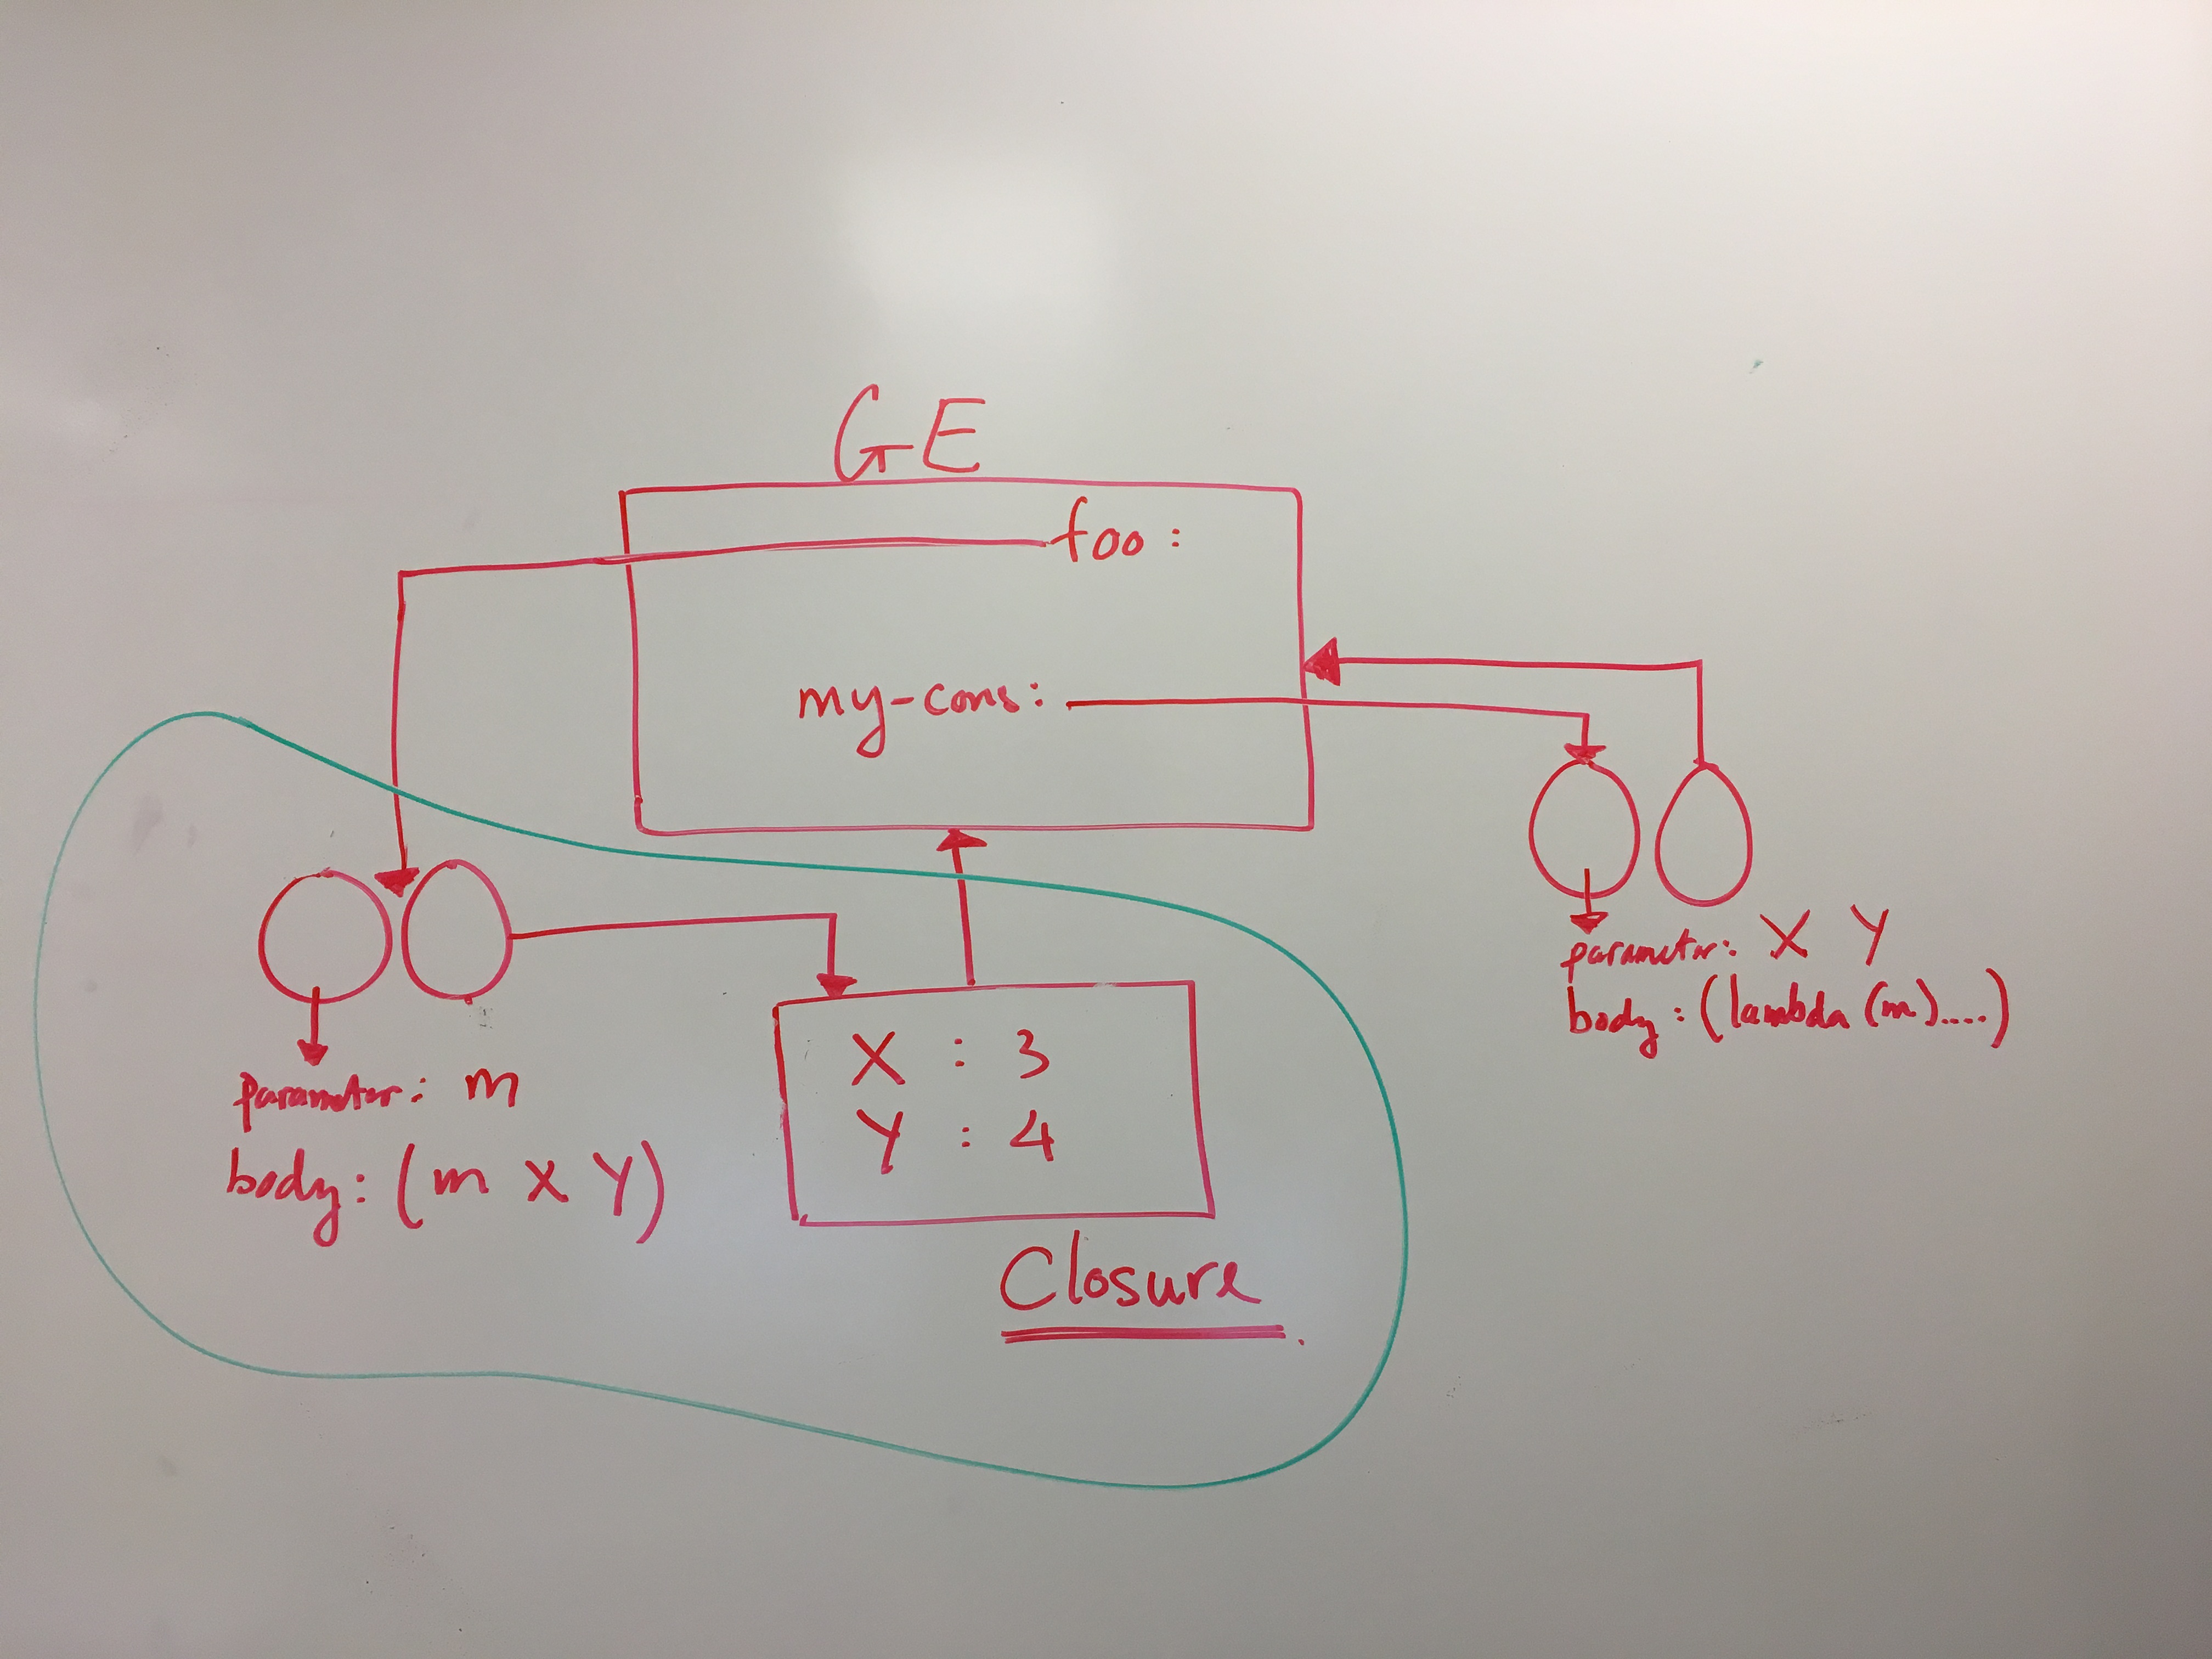 GE
foo :
my-cons:
parameter: X Y
body: (lambda (m)....)
parameter: m
body: (m X Y)
X : 3
Y : 4
Closure